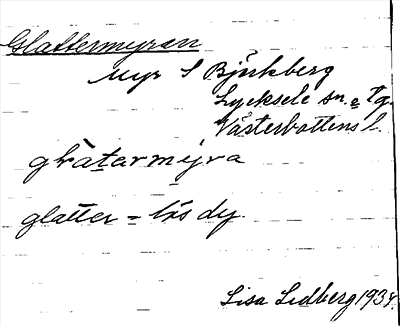 Glattermyran
Myr S Björkberg
Lycksele sn. o tg.
Västerbottens l.
glatarmyra
glatter = lös dy.
Lisa Lidberg 1934.